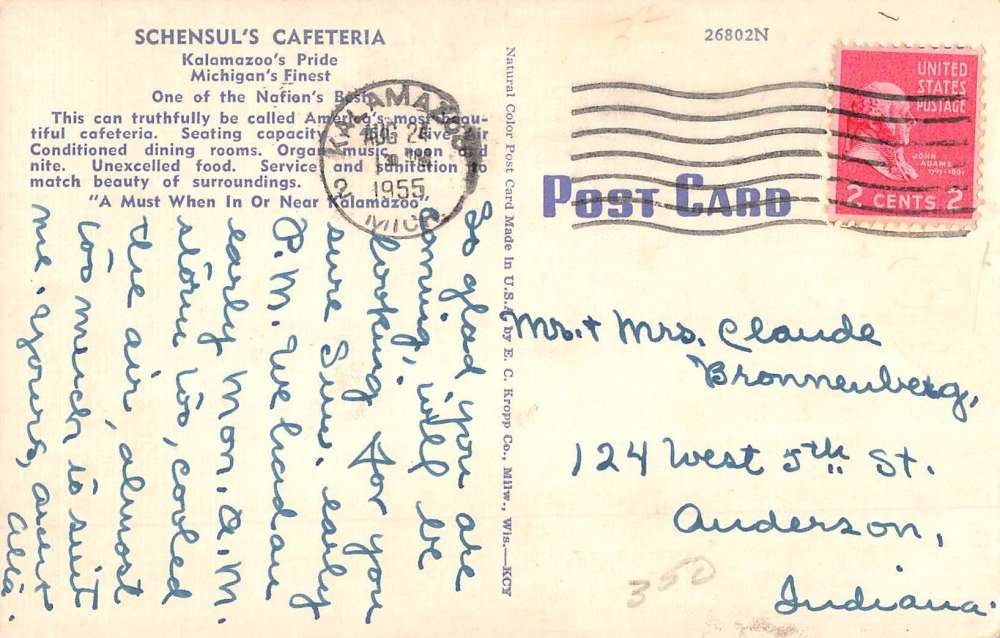 SCHENSUL'S CAFETERIA
Kalamazoo's Pride
Michigan's Finest
One of the Nation's Best
This can truthfully be called America's most beau-
tiful cafeteria. Seating capacity Five Air
Conditioned dining rooms. Organ music, noon and
nite. Unexcelled food. Service and sanitation to
match beauty of surroundings.
"A Must When In Or Near Kalamazoo"
KALAMAZOO
AUG
1955
MICH.
2
26802N
UNITED
STATES
POSTAGE
JOHN
ADAMS
1797-1801
2 CENTS 2
POST CARD
Natural Color Post Card Made in U.S.A. by E. C. Kropp Co., Milw., Wis.—KCY
So glad you are
coming, will be
looking for you
sure Sun. early
P.M. We had an
early Mon. A.M.
storm too, cooled
the air, almost
too much to suit
me. Yours, aunt
Alta.
Mr. + Mrs. Claude
Bronnenberg,
124 West 5th St.
Anderson,
Indiana.
350